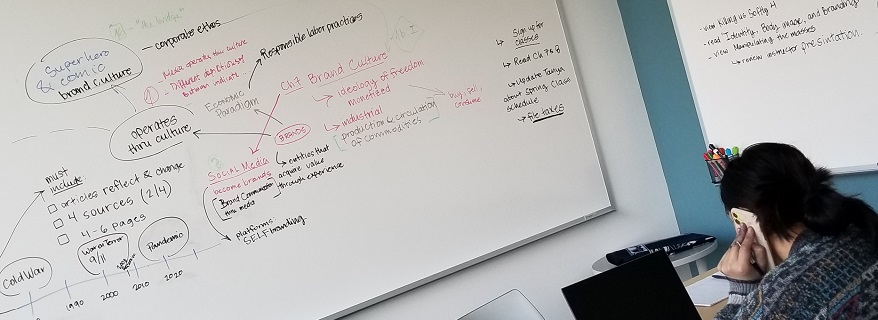 "the bridge"
Superhero
& comic
brand culture
corporate ethos
Responsible labor practices
Economic
Paradigm
operates
thru culture
Ch7 Brand Culture
↳ ideology of freedom
monetized
↳ industrial
production & circulation
of commodities
buy, sell,
consume
BRANDS
↳ entities that
acquire value
through experience
Social Media
become brands
thru media
platforms:
SELF branding
must
include:
□ articles reflect & change
□ 4 sources (2/4)
□ 4-6 pages
Cold War
War on Terror
9/11
Pandemic
1990
2000
2010
2020
↳ Sign up for
classes
↳ Read Ch 7 & 8
↳ Update Tanya
about Spring Class
schedule
↳ file taxes
- view Killing us Softly 4
- read Identity, Body Image, and Branding
- view Manipulating the masses
↳ review instructor presentation.